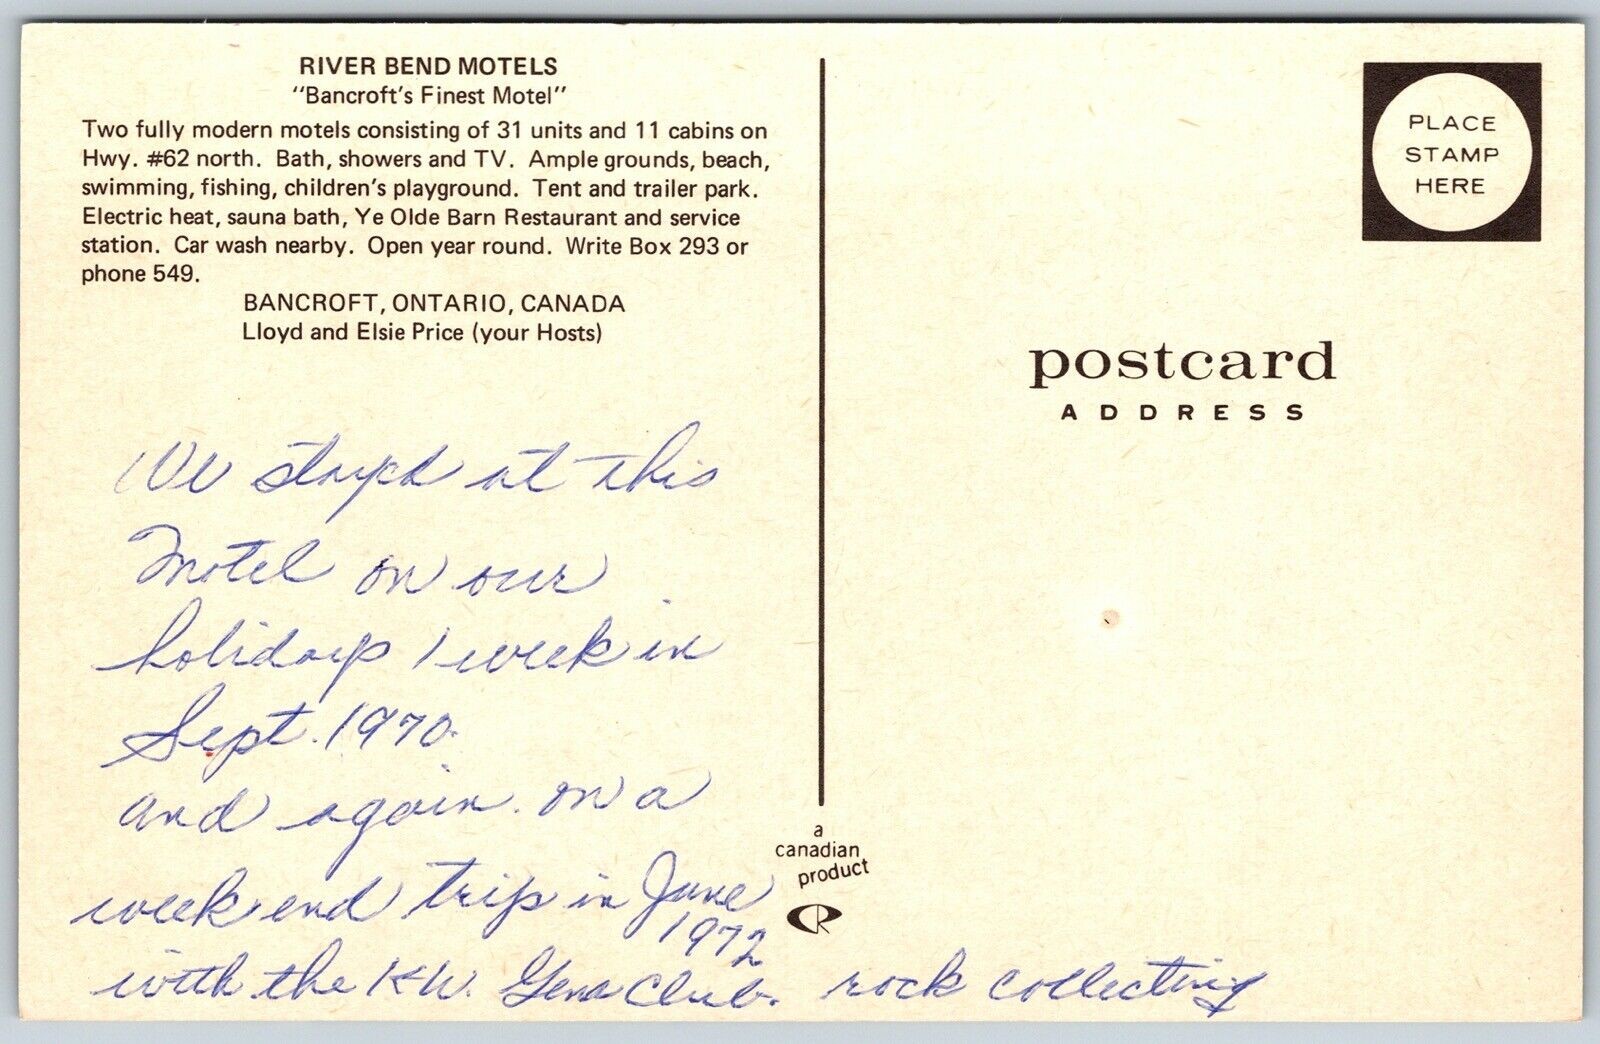 RIVER BEND MOTELS
"Bancroft's Finest Motel"
Two fully modern motels consisting of 31 units and 11 cabins on
Hwy. #62 north. Bath, showers and TV. Ample grounds, beach,
swimming, fishing, children's playground. Tent and trailer park.
Electric heat, sauna bath, Ye Olde Barn Restaurant and service
station. Car wash nearby. Open year round. Write Box 293 or
phone 549.
BANCROFT, ONTARIO, CANADA
Lloyd and Elsie Price (your Hosts)
We stayed at this
Motel on our
holidays 1 week in
Sept. 1970.
and again on a
week end trip in June
1972
with the K-W. Gem Club. rock collecting
a
canadian
product
CR
PLACE
STAMP
HERE
postcard
ADDRESS